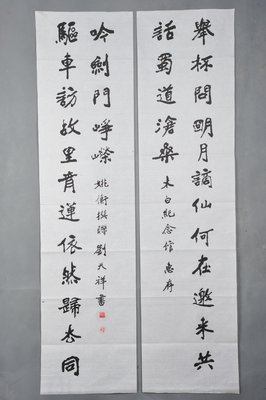 舉杯問明月謫仙何在邀来共
話蜀道滄桑
太白紀念馆惠存
驅車訪故里青蓮依然歸去同
吟劍門崢嶸
姚衡撰聯 劉天祥書